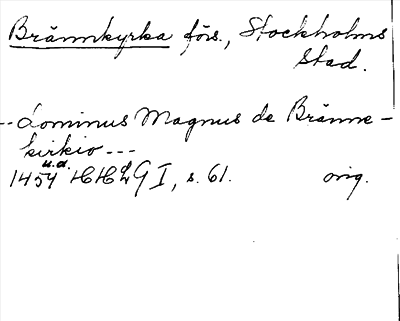 Brännkyrka förs., Stockholms
stad.
-- Dominus Magnus de Bränne-
kirkio ---
u.d.
1454 HHLG I, s. 61. orig.